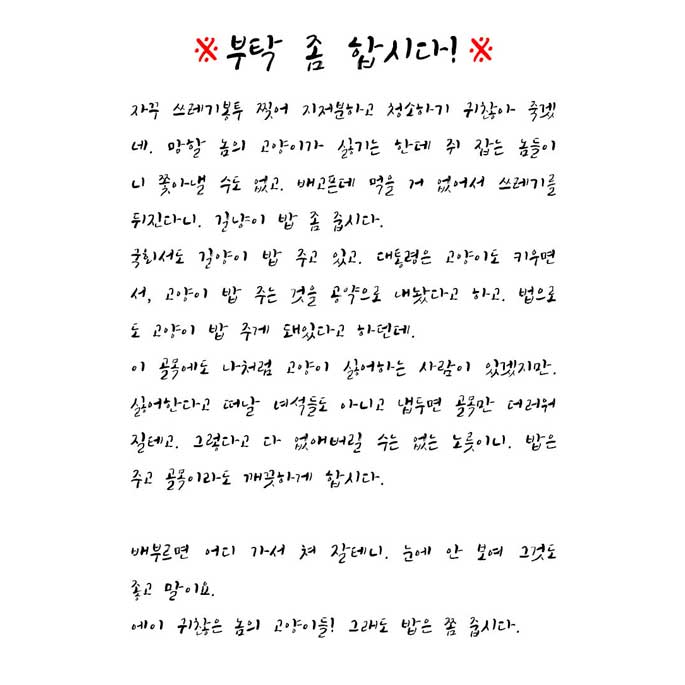 ※부탁 좀 합시다!※
자꾸 쓰레기봉투 찢어 지저분하고 청소하기 귀찮아 죽겠
네. 망할 놈의 고양이가 싫기는 한데 쥐 잡는 놈들이
니 쫓아낼 수도 없고. 배고픈데 먹을 거 없어서 쓰레기를
뒤진다니. 길냥이 밥 좀 줍시다.
국회서도 길양이 밥 주고 있고. 대통령은 고양이도 키우면
서, 고양이 밥 주는 것을 공약으로 내놨다고 하고. 법으로
도 고양이 밥 주게 돼있다고 하던데.
이 골목에도 나처럼 고양이 싫어하는 사람이 있겠지만.
싫어한다고 떠날 녀석들도 아니고 냅두면 골목만 더러워
질테고. 그렇다고 다 없애버릴 수는 없는 노릇이니. 밥은
주고 골목이라도 깨끗하게 합시다.
배부르면 어디 가서 쳐 잘테니. 눈에 안 보여 그것도
좋고 말이요.
에이 귀찮은 놈의 고양이들! 그래도 밥은 쫌 줍시다.